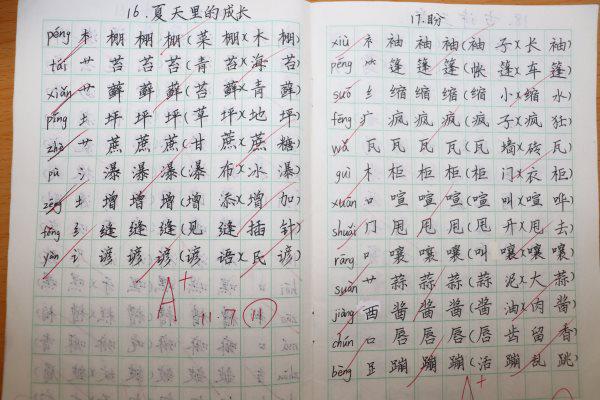 16.夏天里的成长
péng 木 棚 棚 棚(菜 棚)(木 棚)
tái 艹 苔 苔 苔(青 苔)(海 苔)
xiǎn 艹 藓 藓 藓(苔 藓)(青 藓)
píng 土 坪 坪 坪(草 坪)(地 坪)
zhè 艹 蔗 蔗 蔗(甘 蔗)(蔗 糖)
pù 氵 瀑 瀑 瀑(瀑 布)(冰 瀑)
zēng 土 增 增 增(增 添)(增 加)
féng 纟 缝 缝 缝(见 缝)(插 针)
yàn 讠 谚 谚 谚(谚 语)(民 谚)
A+
11.7
17.盼
xiù 衤 袖 袖 袖(袖 子)(长 袖)
péng ⺮ 篷 篷 篷(帐 篷)(车 篷)
suō 纟 缩 缩 缩(缩 小)(缩 水)
fēng 疒 疯 疯 疯(疯 子)(疯 狂)
wǎ 瓦 瓦 瓦 瓦(瓦 墙)(砖 瓦)
guì 木 柜 柜 柜(柜 门)(衣 柜)
xuān 口 喧 喧 喧(喧 叫)(喧 哗)
shuǎi 冂 甩 甩 甩(甩 开)(甩 去)
rāng 口 嚷 嚷 嚷(叫 嚷)(嚷 嚷)
suàn 艹 蒜 蒜 蒜(蒜 泥)(大 蒜)
jiàng 酉 酱 酱 酱(酱 油)(肉 酱)
chún 口 唇 唇 唇(唇 齿 留 香)
bèng 𧾷 蹦 蹦 蹦(活 蹦 乱 跳)
A+